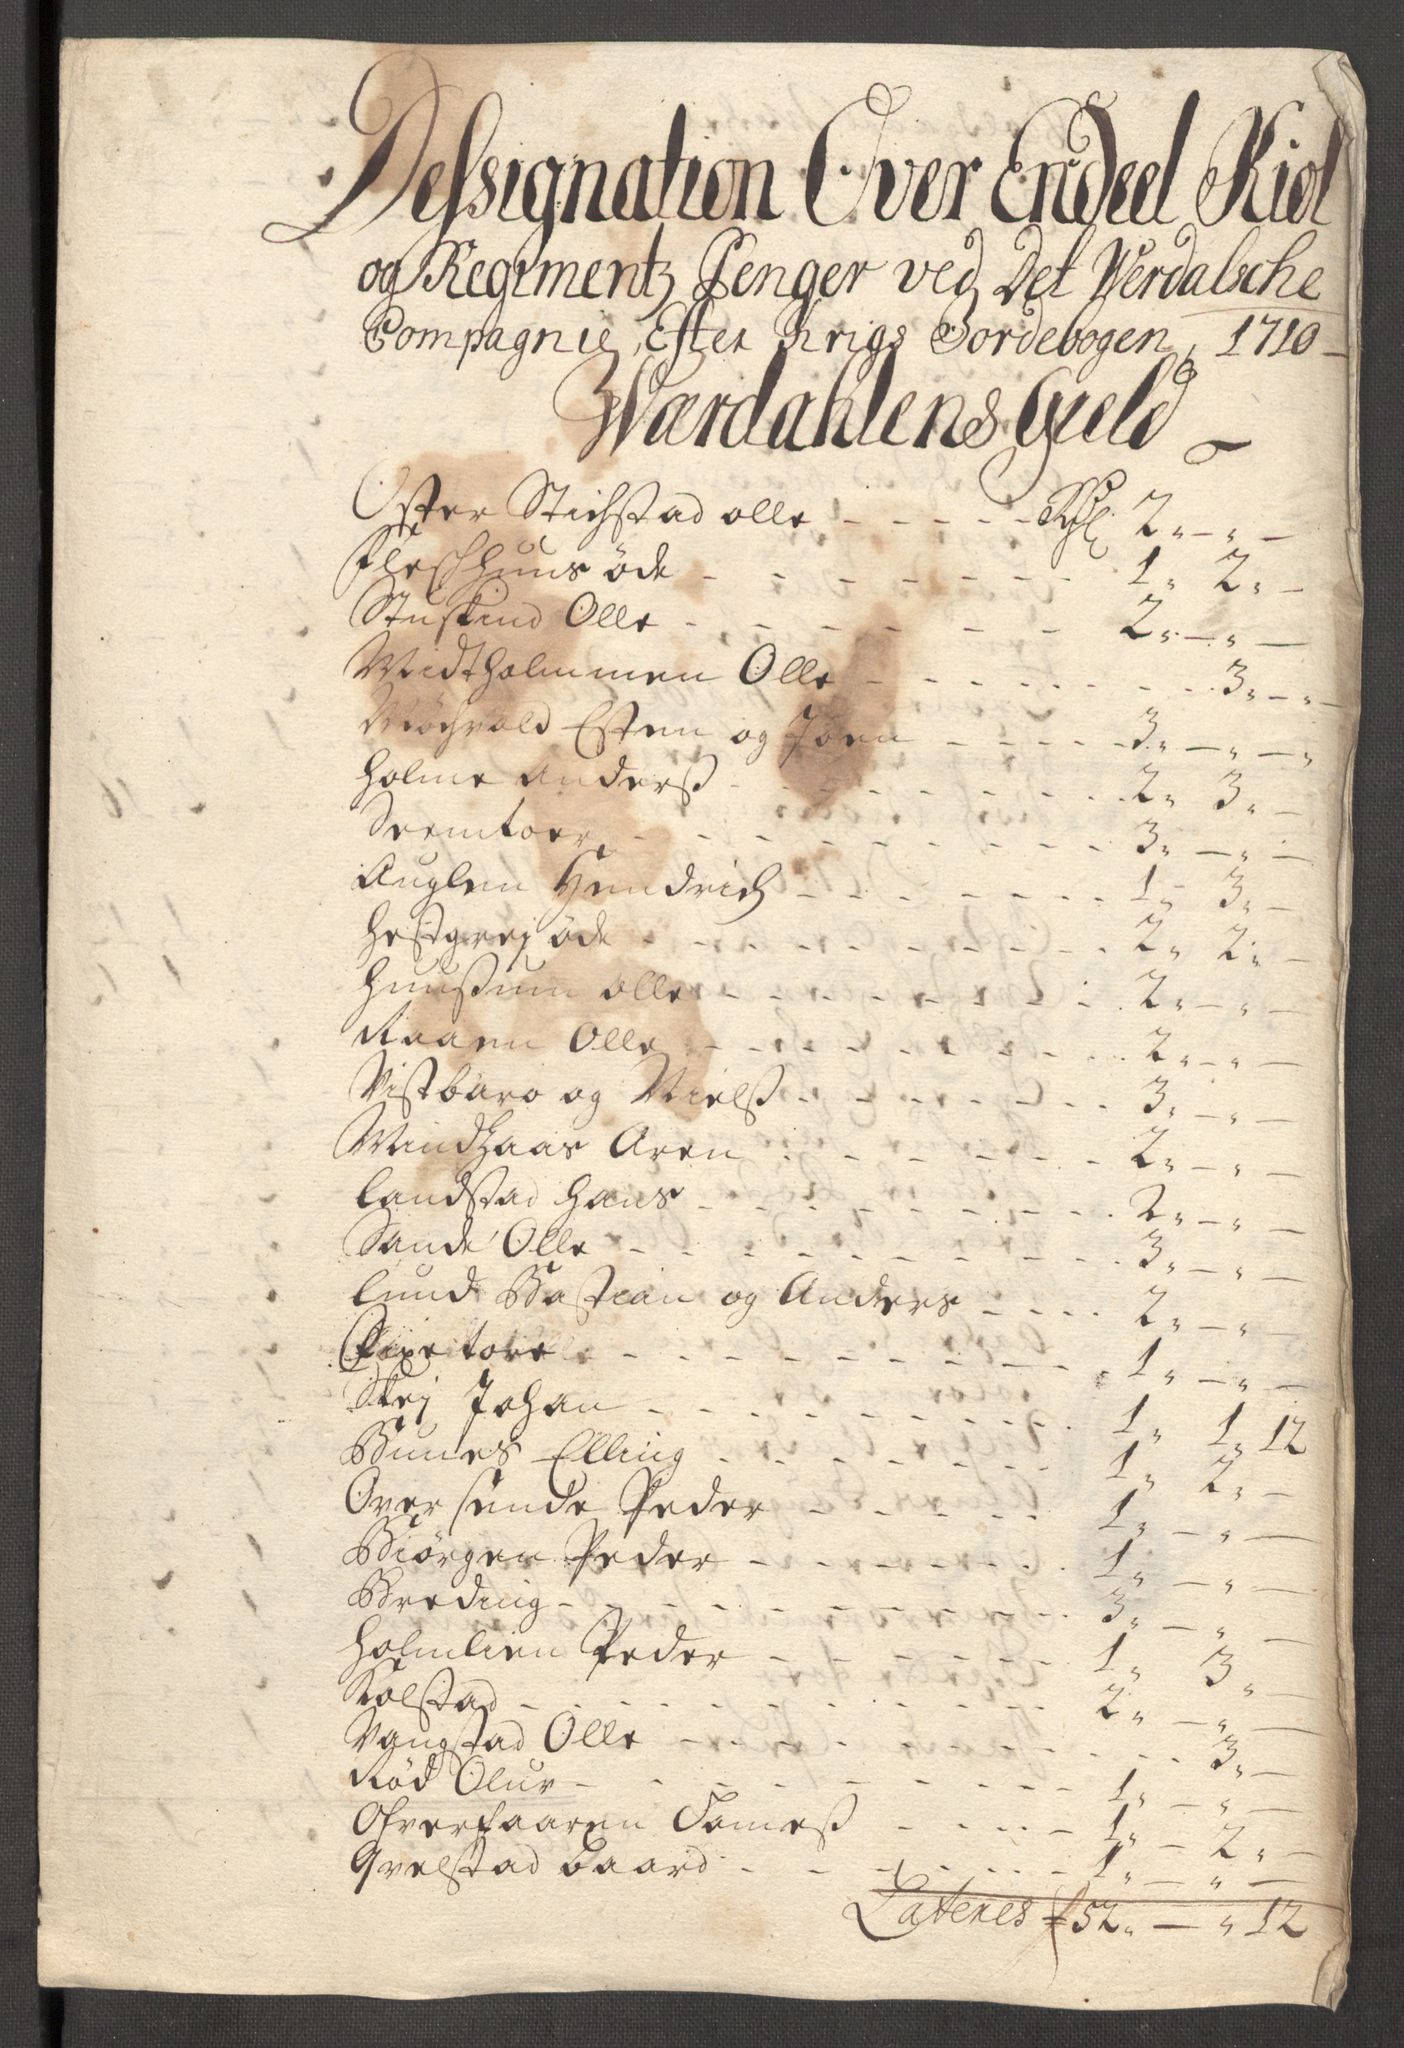 Dessignation Over Endeel Kiol
og Regimentz Penger ved Det Werdalsche
Compagnie, Efter Krigs Jordebogen, 1710
Wærdahlens Gield
Öster Stichstad olle - - - - - 2 " - " -
Fleschhuus öde - - - - - - - 1 " 2 " -
Stuskind Olle - - - - - - - 2 " - " -
Midtholmmen Olle - - - - - - - 3 " - "
Möchvold Esten og Joen - - - - - 3 " - " - "
Holme Anderß - - - - - - - - - 2 " 3 " -
- - - - - - - - - 3 " - " -
Auglen Hendrich - - - - - - - 1 " 3 " -
Hestgrej öde - - - - - - - - - 2 " 2 " -
Huußum olle - - - - - - - - - 2 " - " -
Raaen Olle - - - - - - - - - 2 " - " -
Vistbaro og Nielß - - - - - - - 3 " - " -
Mindhaas Aren - - - - - - - 2 " - " -
Landstad Hans - - - - - - - - 2 " - " -
Sande Olle - - - - - - - - - 3 " - " -
Lund Bastian og Anders - - - - 2 " - " -
tore - - - - - - - - - 1 " - " -
Skej Johan - - - - - - - - - 1 " 1 " 12
Bunes Elling - - - - - - - - 1 " 2 " -
Over sende Peder - - - - - - 1 " - " -
Biörgen Peder - - - - - - - 1 " - " -
Breding - - - - - - - - - - 3 " - " -
Holmlien Peder - - - - - - - 1 " 3 " -
Kolstad - - - - - - - - - - 2 " - " -
Vangstad Olle - - - - - - - - - 3 " -
Röd Oluv - - - - - - - - - 1 " - " -
Ofverfaaren Tomeß - - - - - 1 " - 2 " -
Qvelstad Baard - - - - - - - 1 " - " -
Lateres 52 " - " 12